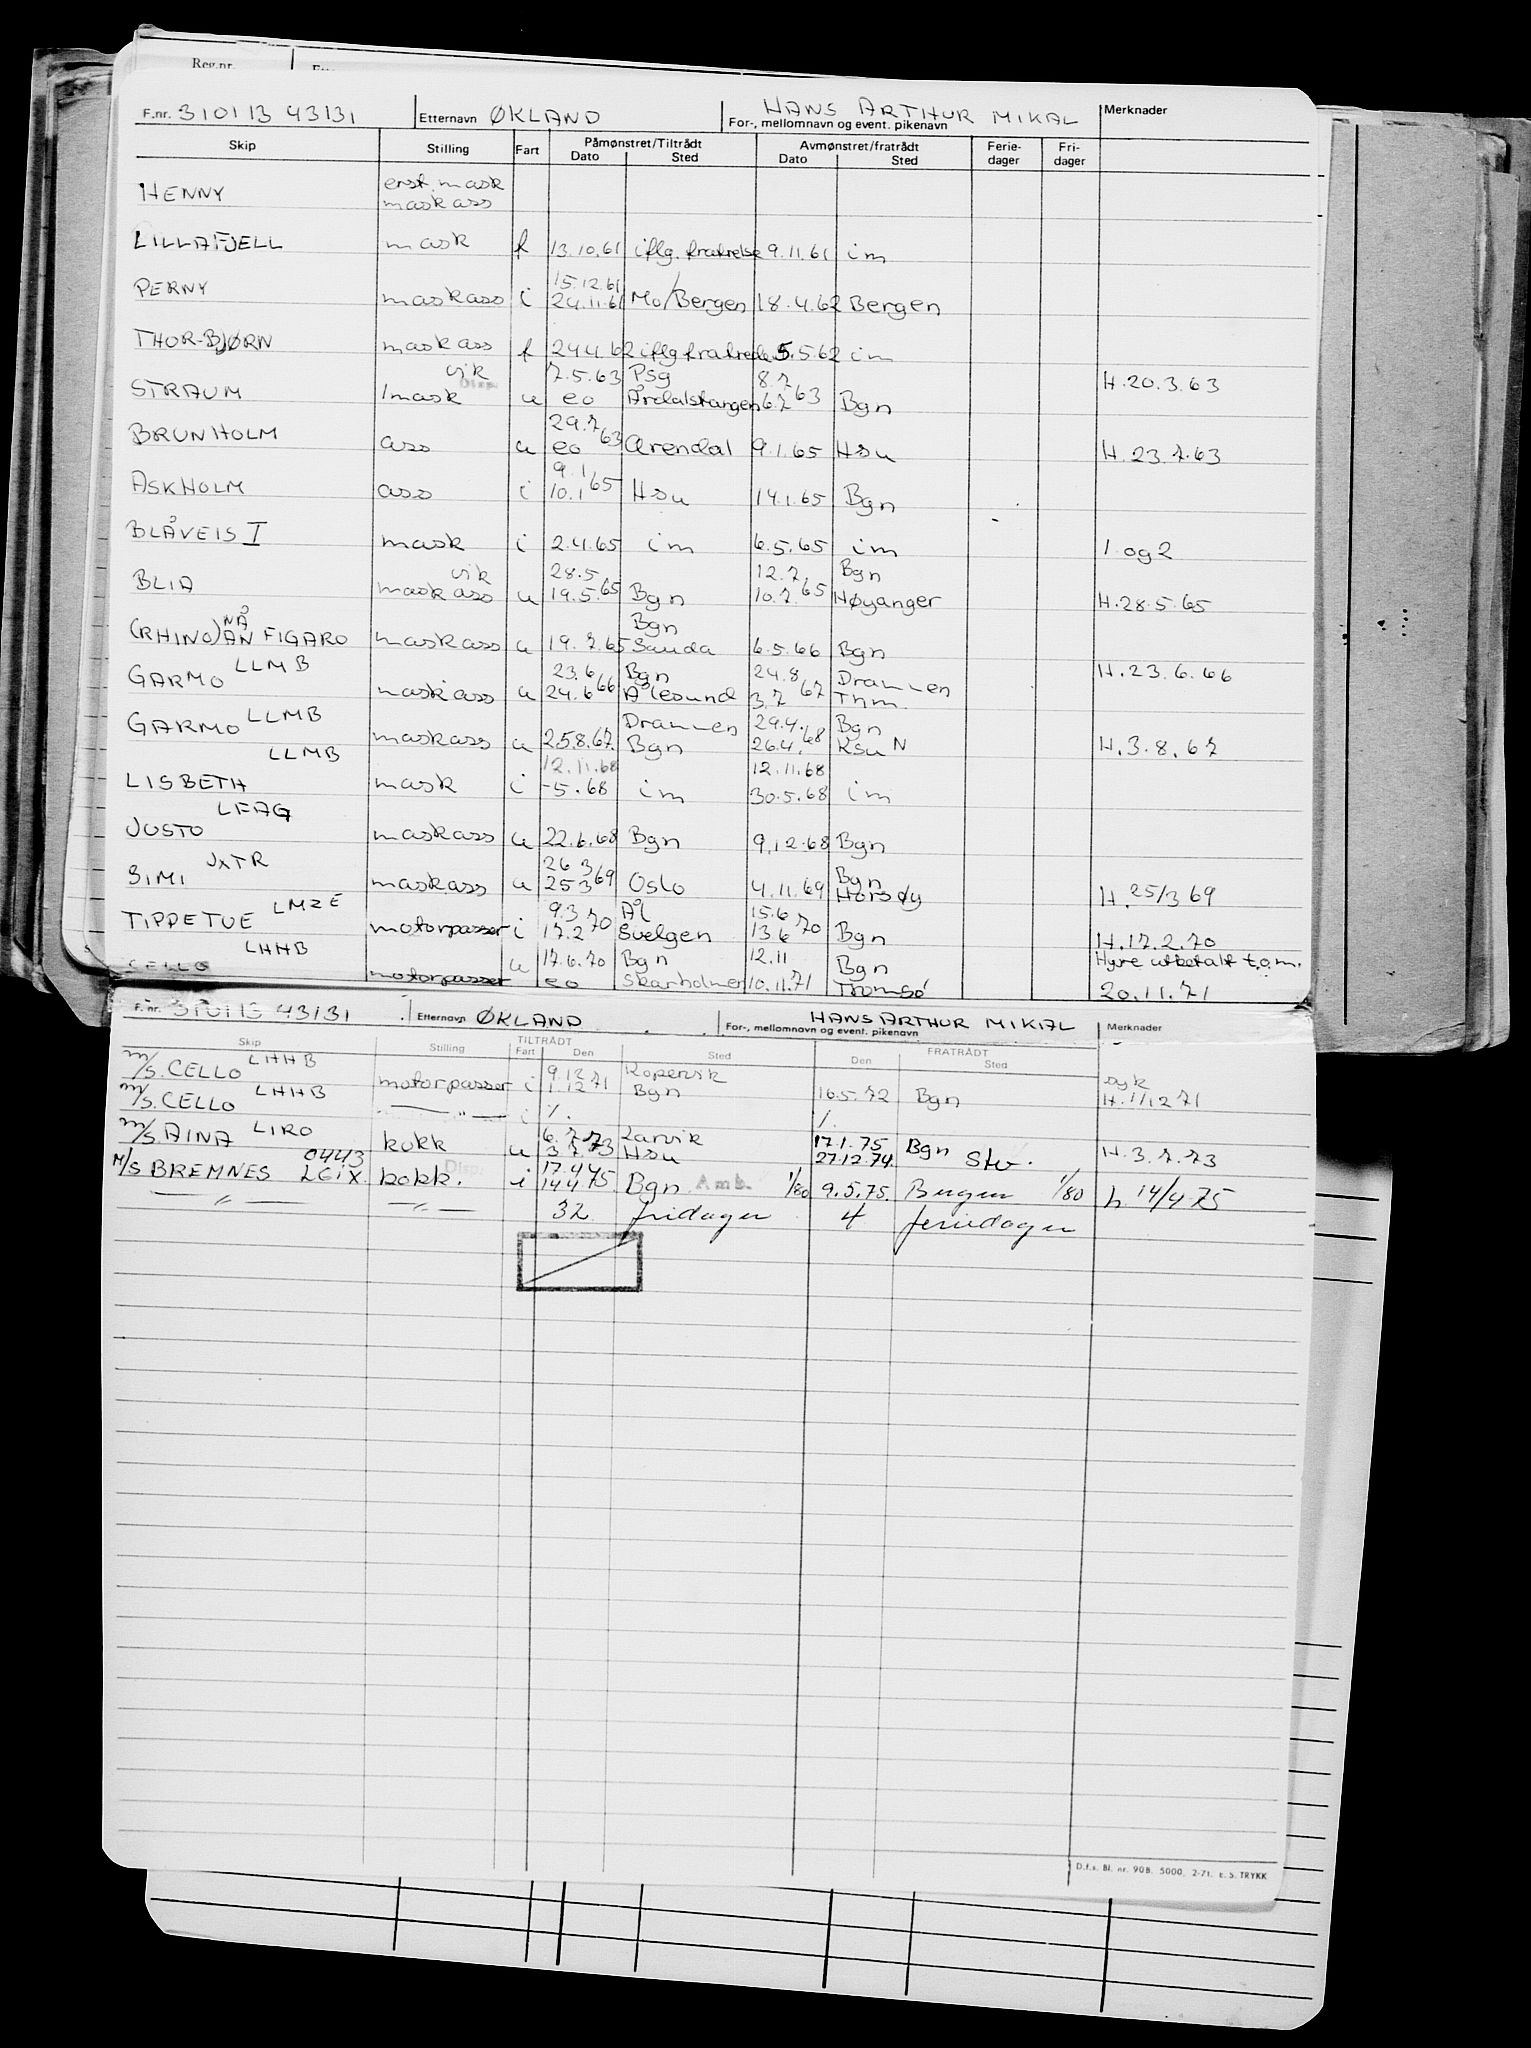 Reg.nr.
F.nr. 310113 43131 Etternavn ØKLAND HANS ARTHUR MIKAL For-, mellomnavn og event. pikenavn Merknader
Skip Stilling Fart Påmønstret/Tiltrådt Dato Sted Avmønstret/fratrådt Dato Sted Ferie-dager Fri-dager
HENNY erst. mask maskass
LILLAFJELL mask f 13.10.61 iflg. fratrelse 9.11.61 im
PERNY maskass i 15.12.61 24.11.61 Mo/Bergen 18.4.62 Bergen
THOR-BJØRN maskass f 24.4.62 iflg fratrede 5.5.62 im
STRAUM vik 1mask u 7.5.63 eo Psg Årdalstangen 8.7 6.7 63 Bgn H.20.3.63
BRUNHOLM ass u 29.7 63 eo Arendal 9.1.65 Hsu H.23.7.63
ASKHOLM ass i 9.1 10.1 65 Hsu 14.1.65 Bgn
BLÅVEIS I mask i 2.4.65 im 6.5.65 im 1 og 2
BLIA vik maskass u 28.5 19.5.65 Bgn 12.7 10.7.65 Bgn Høyanger H.28.5.65
(RHINO) NÅ AN FIGARO maskass u 19.7.65 Bgn Sauda 6.5.66 Bgn
GARMO LLMB maskass u 23.6 24.6 66 Bgn Ålesund 24.8 3.7 67 Drammen Thm. H.23.6.66
GARMO LLMB maskass u 25.8.67. Drammen Bgn 29.4. 26.4. 68 Bgn KsuN H.3.8.67
LLMB
LISBETH mask i 12.11.68 -5.68 im 12.11.68 30.5.68 im
JUSTO LFAG maskass u 22.6.68 Bgn 9.12.68 Bgn
SIMI JXTR maskass u 26 3 25 3 69 Oslo 4.11.69 Bgn Horsøy H. 25/3 69
TIPPETUE LMZE motorpasser i 9.3 17.2 70 Ål Svelgen 15.6 13 6 70 Bgn H.17.2.70
CELLO LHHB motorpasser u 17.6.70 eo Bgn Skarholmen 12.11 10.11.71 Bgn Tromsø Hyre utbetalt t.o.m. 20.11.71
F. nr. 310113 43131 Etternavn ØKLAND HANS ARTHUR MIKAL For-, mellomnavn og event. pikenavn Merknader
Skip Stilling TILTRÅDT Fart Den Sted FRATRÅDT Den Sted
m/s. CELLO LHHB motorpasser i 9.12 1.12 71 Kopervik Bgn 16.5.72 Bgn syk H.1/12 71
m/s. CELLO LHHB —"— i ·/. ·/.
m/s. AINA LIRO kokk u 6.7.73 3.7.73 Larvik Hsu 17.1.75 27.12.74. Bgn Stv. H.3.7.73
M/S BREMNES 0443 LGIX. kokk. i 17.4 14.4 75. Bgn Amb. 1/80 9.5.75. Bergen 1/80 h. 14/4-75
—"— —"— 32 fridager 4 feriedager
D.f.s. Bl. nr. 90B. 5000. 2-71. E. S. TRYKK